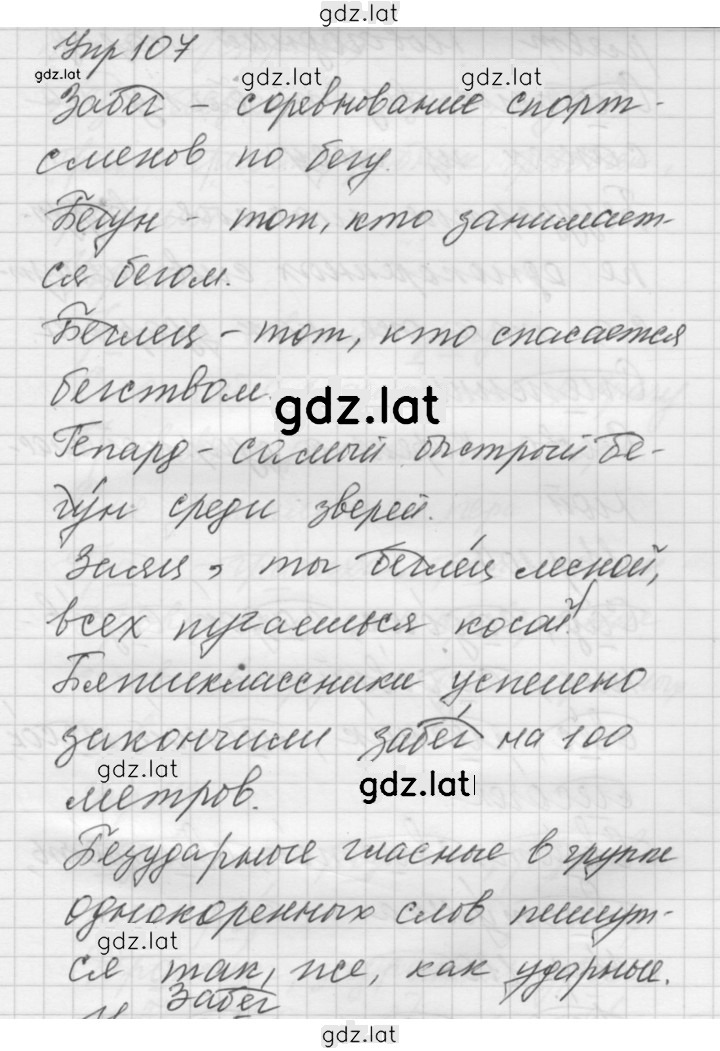 gdz.lat
Упр 107
gdz.lat gdz.lat gdz.lat
Забег - соревнование спорт-
сменов по бегу.
Бегун - тот, кто занимает-
ся бегом.
Беглец - тот, кто спасается
бегством.
gdz.lat
Гепард - самый быстрый бе-
гун среди зверей.
Заяц, ты беглец лесной,
всех пугаешься косой!
Пятиклассники успешно
закончили забег на 100
gdz.lat gdz.lat
метров.
Безударные гласные в группе
однокоренных слов пишут-
gdz.lat
ся так, же, как ударные.
Забег
gdz.lat